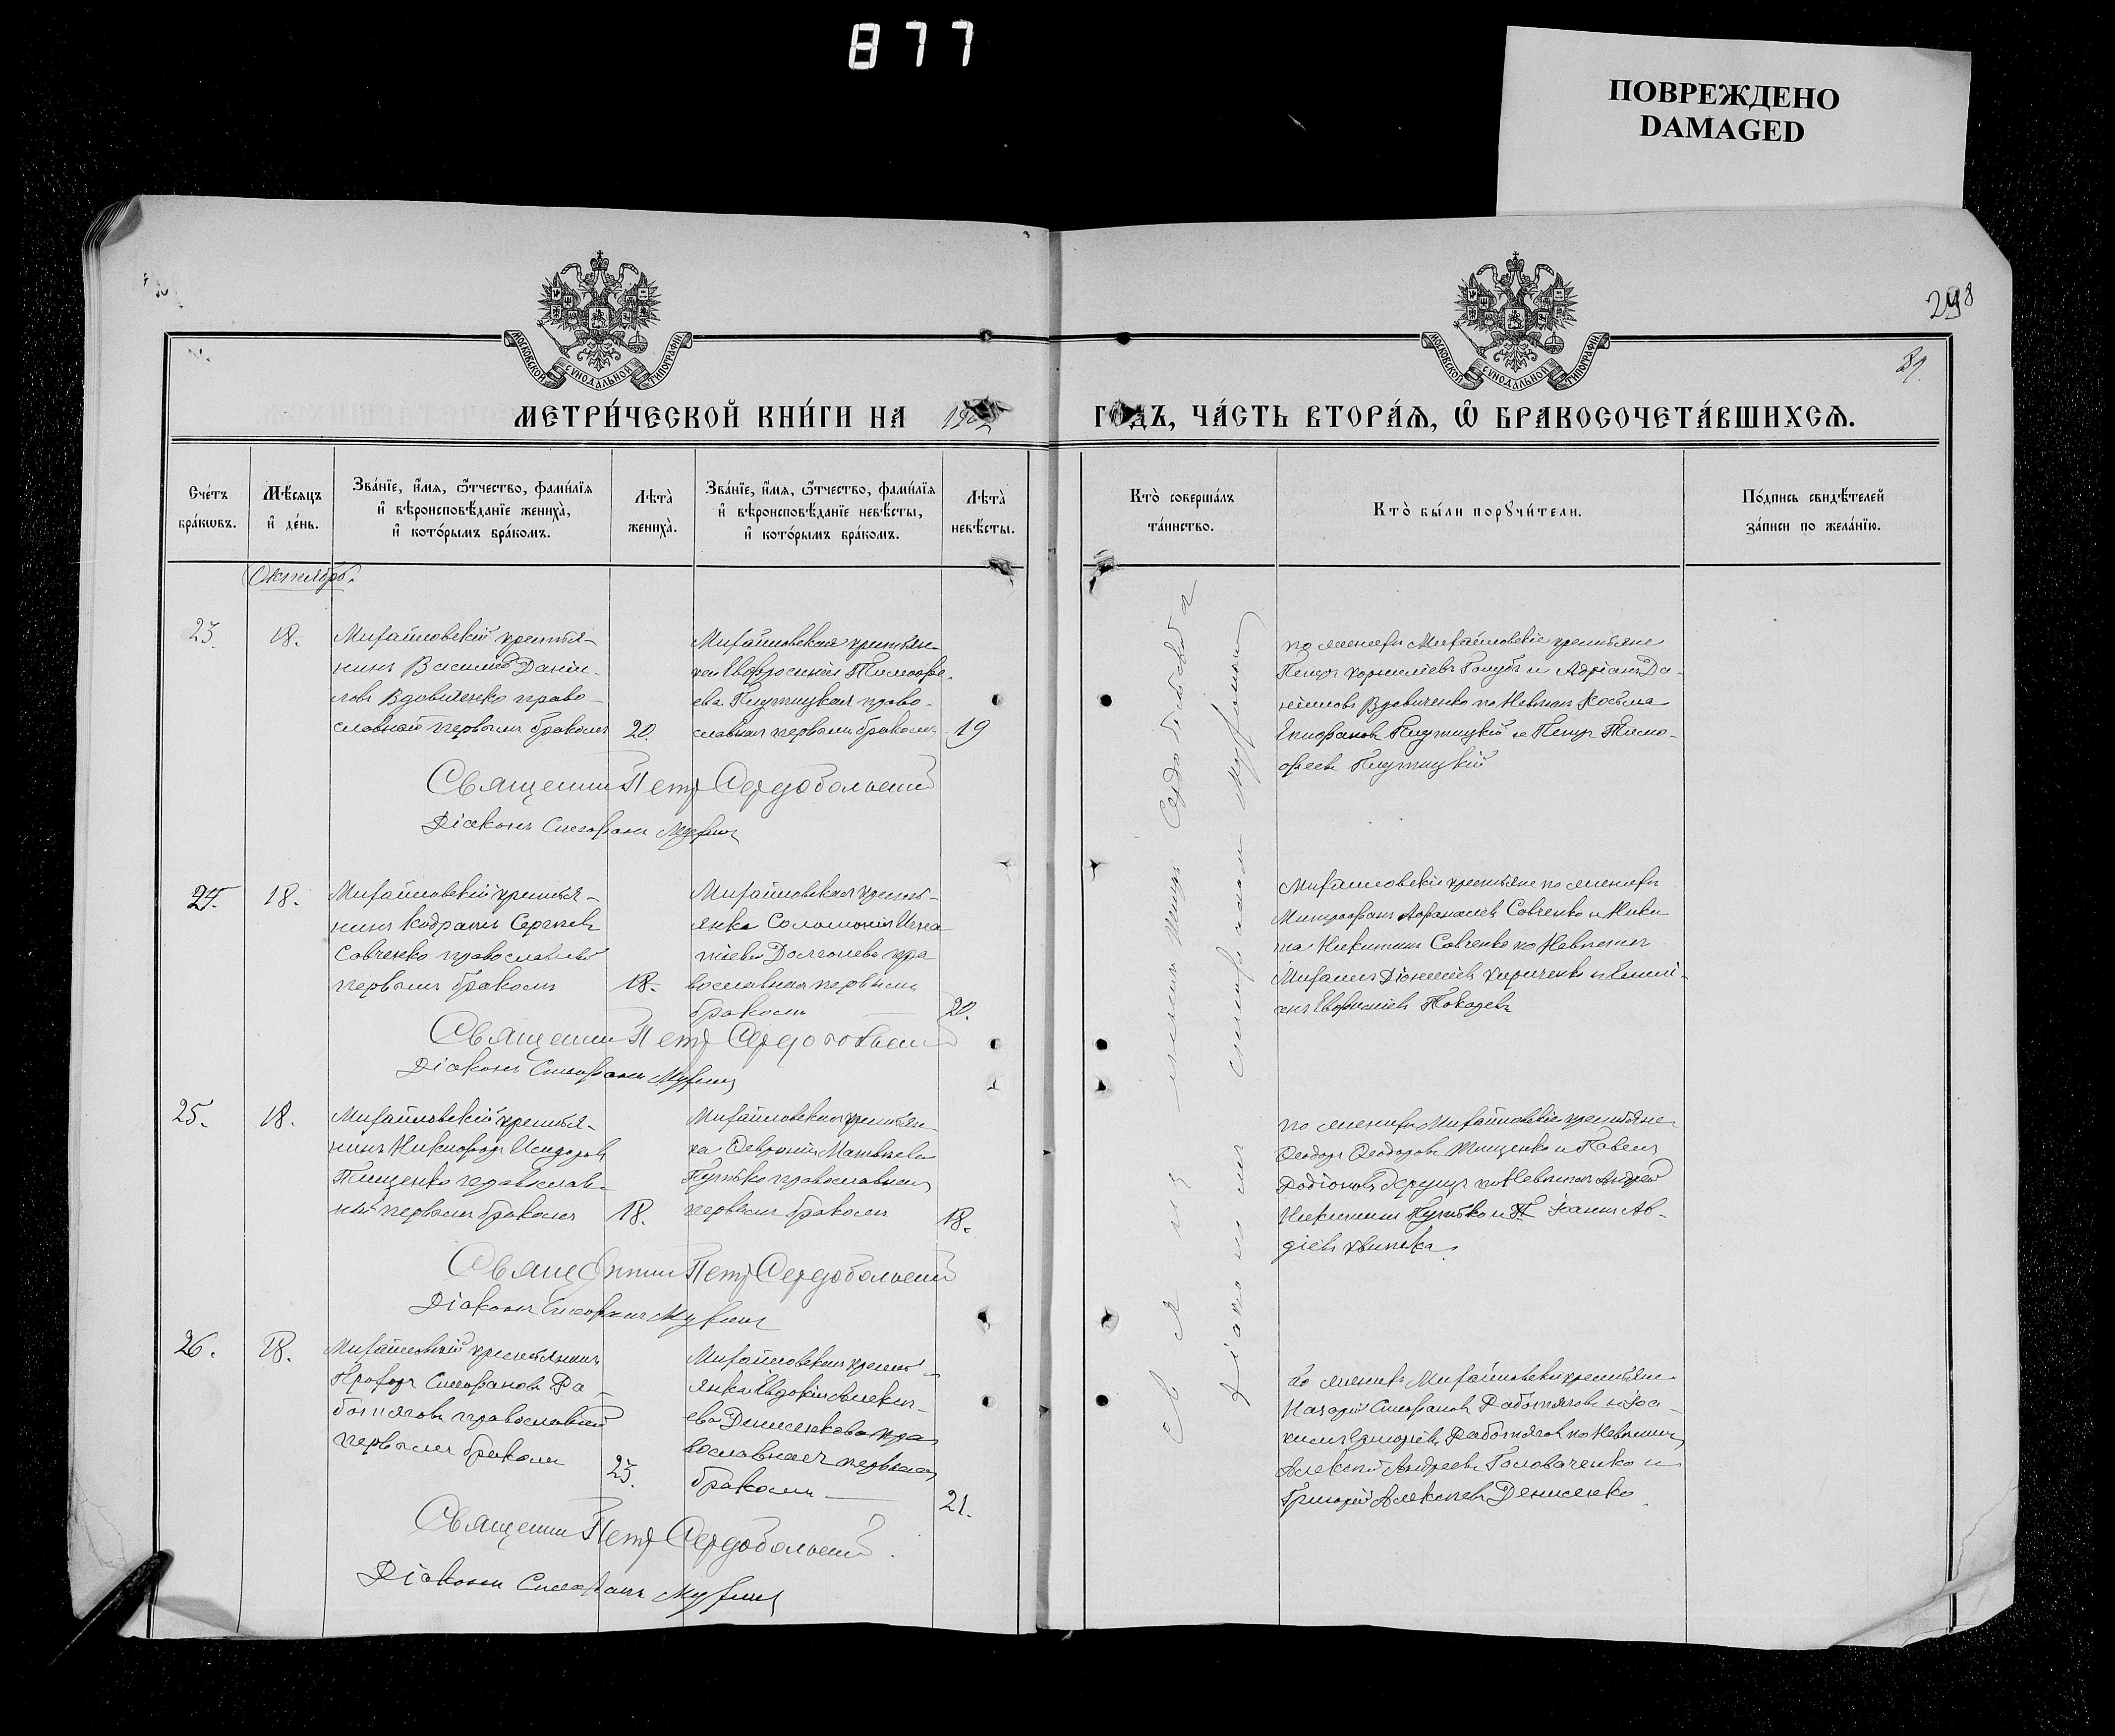 877
ПОВРЕЖДЕНО
DAMAGED
МОСКОВСКОЙ СѴНОДАЛЬНОЙ ТИПОГРАФІИ
МОСКОВСКОЙ СѴНОДАЛЬНОЙ ТИПОГРАФІИ
298
89
МЕТРИ́ЧЕСКОЙ КНИ́ГИ НА
ГОДЪ, ЧА́СТЬ ВТОРА́Ѧ, Ѽ БРАКОСОЧЕТА́ВШИХСѦ.
Сче́тъ бра́кѡвъ.
Мѣ́сѧцъ и҆ де́нь.
Зва́нїе, и҆́мѧ, ѻ҆́тчество, фами́лїѧ
и҆ вѣроисповѣ́данїе жениха̀,
и҆ кото́рымъ бра́комъ.
Лѣта̀ жениха̀.
Зва́нїе, и҆́мѧ, ѻ҆́тчество, фами́лїѧ
и҆ вѣроисповѣ́данїе невѣ́сты,
и҆ кото́рымъ бра́комъ.
Лѣта̀ невѣ́сты.
Кто̀ соверша́лъ та́инство.
Кто̀ бы́ли порꙋчи́тели.
По́дпись свидѣ́телей за́писи по жела́нїю.
Октябрь.
23
18.
Михайловскій крестья-
нинъ Василій Даніи-
ловъ Вдовиченко право-
славный первымъ бракомъ
20.
Михайловская крестьян-
ка Евфросинія Тимофе-
ева право-
славная первымъ бракомъ
19
по женихѣ Михайловскіе крестьяне
Петръ Корниліевъ Голубъ и Адріанъ Да-
ніиловъ Вдовиченко по невѣстѣ Косьма
Епифановъ и Петръ Тимо-
феевъ
Священникъ Петръ Сердобольскій
Діаконъ Стефанъ Мухинъ
24.
18.
Михайловскій крестья-
нинъ Кодратъ Сергѣевъ
Савченко православный
первымъ бракомъ
18.
Михайловская кресть-
янка Соломонія Игна
тіева Долгополова пра
вославная первымъ
бракомъ
20.
Михайловскіе крестьяне по женихѣ
Митрофанъ Афанасіевъ Савченко и Ники
та Никитинъ Савченко по невѣстѣ
Михаилъ Діонисіевъ Кириченко и Емилі-
анъ Евфиміевъ
Священникъ Петръ Сердобольскій
Діаконъ Стефанъ Мухинъ
25.
18.
Михайловскій крестья-
нинъ Никифоръ Исидоровъ
Тищенко православ-
ный первымъ бракомъ
18.
Михайловская крестьян-
ка Февронія Матвѣева
православная
первымъ бракомъ
18.
по женихѣ Михайловскіе крестьяне
Ѳеодоръ Ѳеодоровъ Тищенко и Павелъ
Родіоновъ по невѣстѣ Андрей
Никитинъ и Іоаннъ Ав-
діевъ
Священникъ Петръ Сердобольскій
Діаконъ Стефанъ Мухинъ
26.
18.
Михайловскій крестьянинъ
Прохоръ Стефановъ Ра-
ботяговъ православный
первымъ бракомъ
23.
Михайловская кресть-
янка Евдокія Алексѣ-
ева Денисенкова пра
вославная первымъ
бракомъ
21.
по женихѣ Михайловскіе крестьяне
Назарій Стефановъ Работяговъ и Іоа-
кимъ Григоріевъ Работяговъ по невѣстѣ
Алексѣй Андреевъ Головаченко и
Григорій Алексѣевъ Денисенко
Священникъ Петръ Сердобольскій
Діаконъ Стефанъ Мухинъ
Священникъ Петръ Сердобольскій
Діаконъ Стефанъ Мухинъ